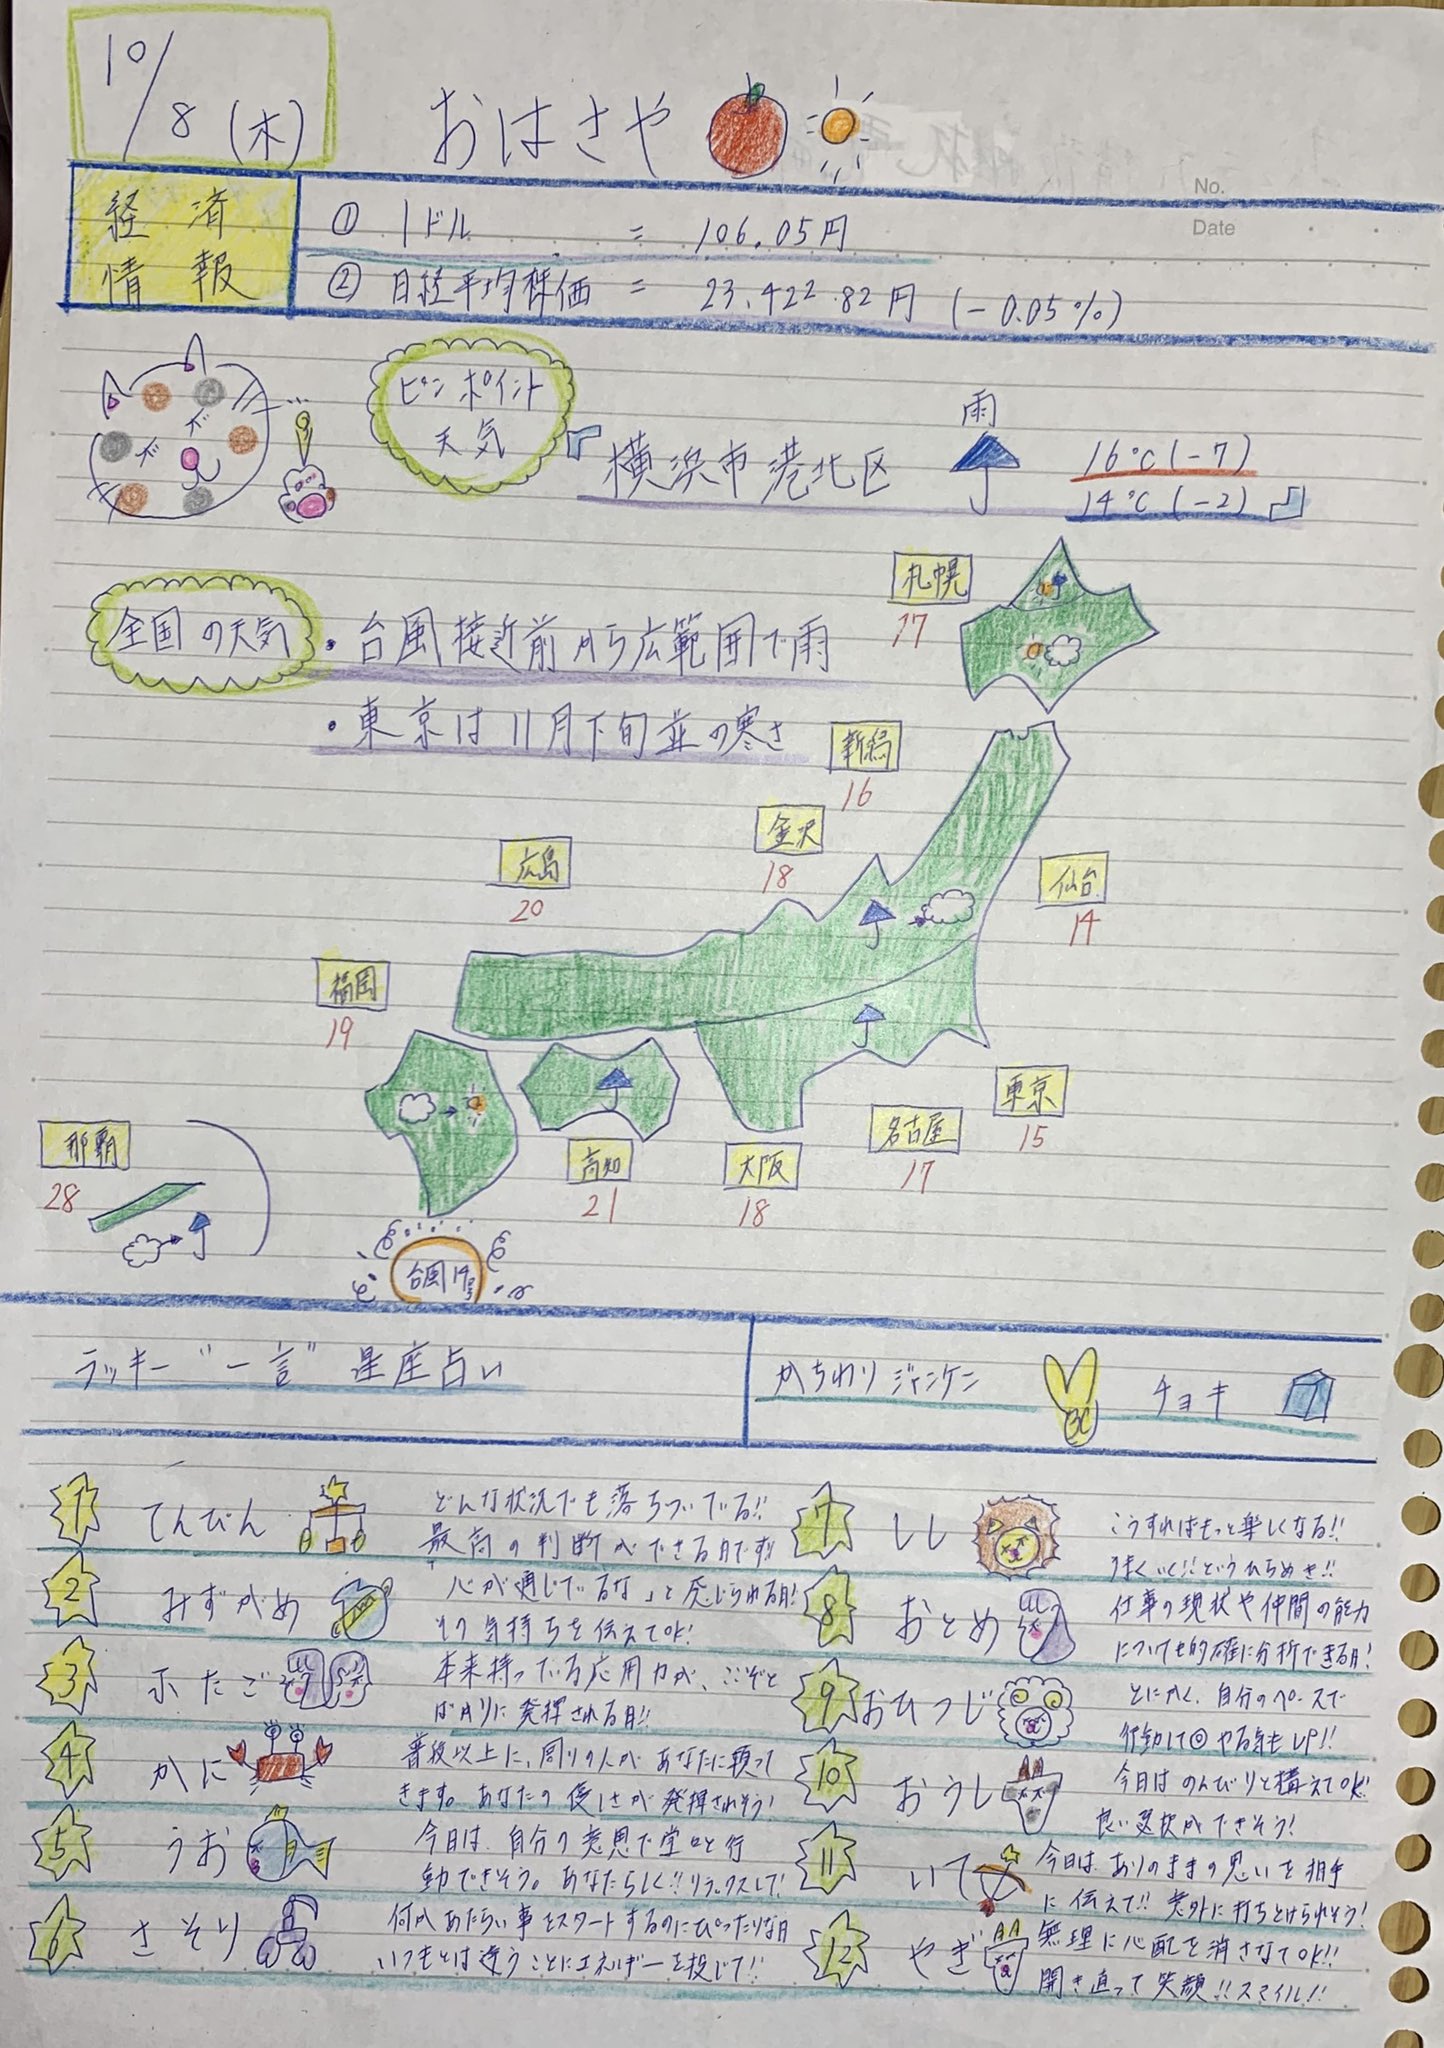 10/8(木)
おはさや
No.
Date
経済
情報
① 1ドル = 106.05円
② 日経平均株価 = 23.422.82円 (-0.05%)
ピンポイント
天気
横浜市港北区
雨
16℃(-7)
14℃(-2)
全国の天気
・台風接近前から広範囲で雨
・東京は11月下旬並の寒さ
札幌
17
新潟
16
金沢
18
仙台
14
広島
20
福岡
19
東京
15
名古屋
17
大阪
18
高知
21
那覇
28
台風14号
ラッキー"一言"星座占い
かちわりジャンケン
チョキ
1 てんびん
どんな状況でも落ちついでいる!!
最高の判断ができる日です!!
2 みずがめ
「心が通じているな」と感じられる日!
その気持ちを伝えてOK!
3 ふたご
本来持っている応用力が、ここぞと
ばかりに発揮される日!!
4 かに
普段以上に、周りの人があなたに頼って
きます。あなたの優しさが発揮されそう!
5 うお
今日は、自分の意思で堂々と行
動できそう。あなたらしく!!リラックスして!
6 さそり
何かあたらしい事をスタートするのにぴったりな日
いつもとは違うことにエネルギーを投じて!!
7 しし
こうすればもっと楽しくなる!!
うまくいく!!というひらめき!!
8 おとめ
仕事の現状や仲間の能力
についても的確に分析できる日!
9 おひつじ
とにかく、自分のペースで
行動して◎やる気もUP!!
10 おうし
今日はのんびりと構えてOK!
良い選択ができそう!
11 いて
今日は、ありのままの思いを相手
に伝えて!!意外に打ちとけられそう!
12 やぎ
無理に心配を消さなくてOK!!
開き直って笑顔!!スマイル!!